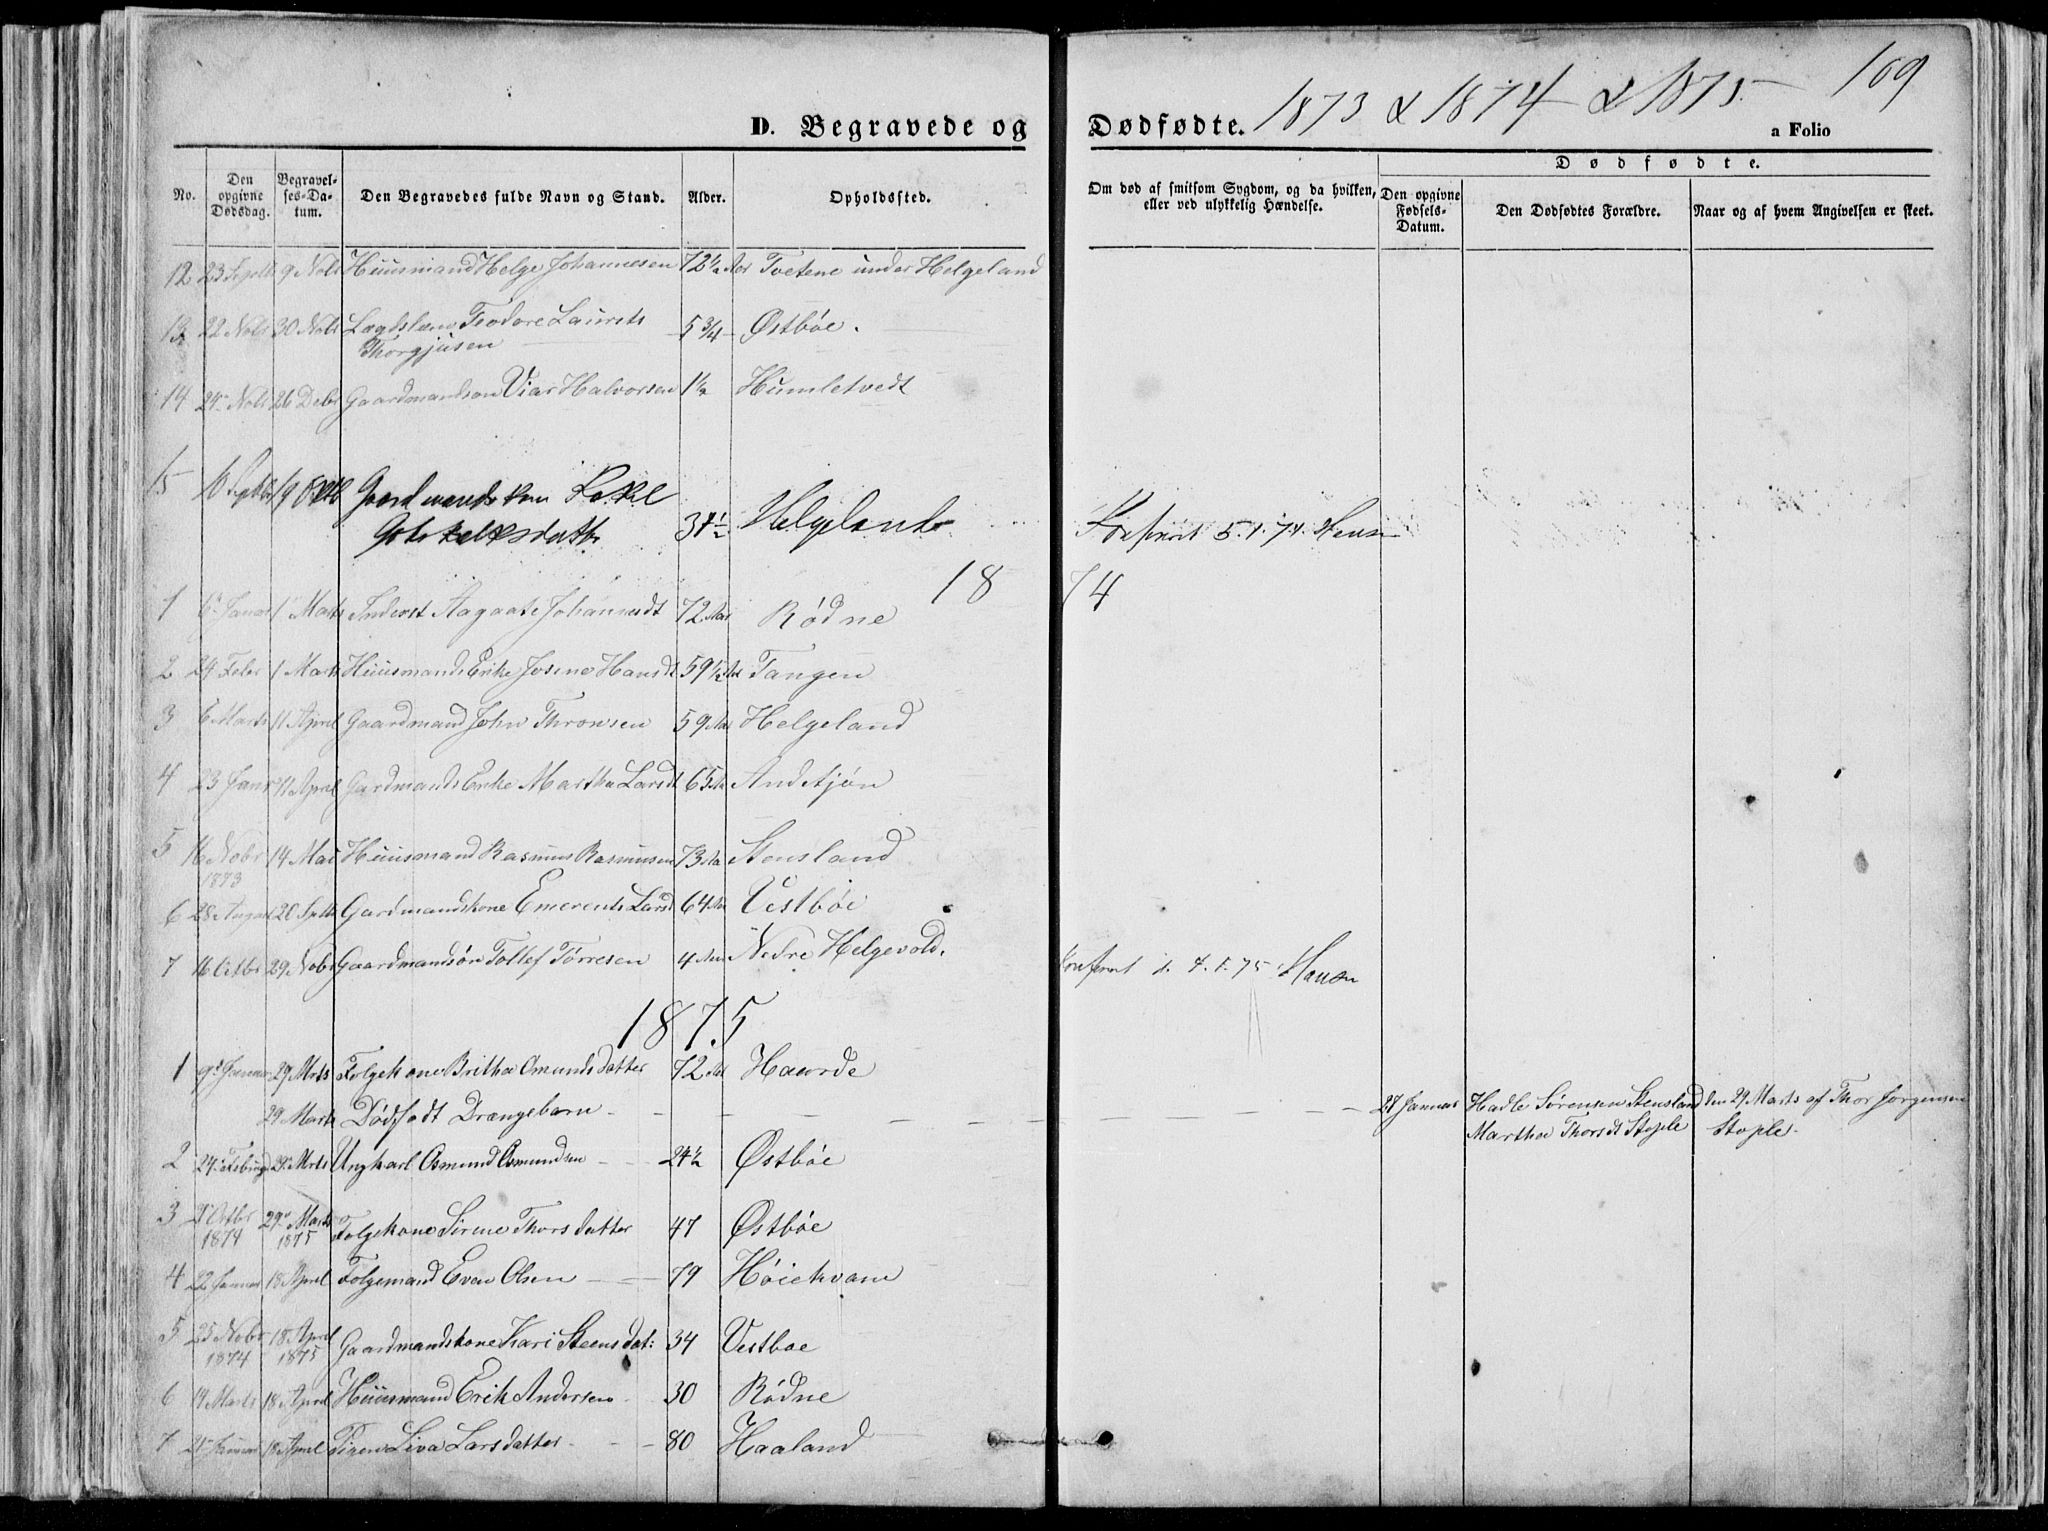 1873 & 1874 & 1875 - 109
D. Begravede og Dødfødte. a Folio
Dødfødte.
No. Den opgivne Dødsdag. Begravelses-Datum. Den Begravedes fulde Navn og Stand. Alder. Opholdssted. Om død af smitsom Sygdom, og da hvilken, eller ved ulykkelig Hændelse. Den opgivne Fødsels-Datum. Den Dødfødtes Forældre. Naar og af hvem Angivelsen er skeet.
12 23 Septb 9 Novb Huusmand Helge Johannesen 72½ Aar Tvetene under Helgeland
13 22 Novb 30 Novb Lægdslem Teodore Laurits
Thorgjusen 5¾ Østbøe.
14 24 Novb 26 Debr Gaardmandsøn Viar Halvorsen 1½ Humletvedt
15 16 Septbr 19 Oktb Gaardmandskone
34½ Helgeland 5.1.74.
18 74
1 6 Januar 1 Marts Inderst Aagaate Johannesdt 72 Aar Rødne
2 24 Feber 1 Marts Huusmands Enke Josine Hansdt 59½ Aar Tangen
3 6 Marts 11 April Gaardmand John Thronsen 59 Aar Helgeland
4 23 Janr 11 April Gardmands Enke Martha Larsdt 65 Aar
5 16 Nobr 14 Mai Huusmand Rasmus Rasmusen 73 Aar Stensland
1873
6 28 August 20 Septb Gardmandskone Emerents Larsd 64 Aar Vestbøe
7 16 Octbr 29 Nobr Gaardmandsøn Tollef Tørresen 4 Aar Nedre Helgevold.
4.1.75 Hansen
1875
1 9d Januar 29 Mrts Folgekone Britha Omundsdatter 72 Aar Haarde
29 Marts Dødfødt Drængebarn - - - - 28 Januar Hadle Sørensen Stensland den 29 Marts af Thor Jorgensen
Martha Thorsdt Stople Stople.
2 24 Februar 29 Mrts Ungkarl Osmund Osmundsen - - 24½ Østbøe
3 Octbr 29 Marts Folgekone Sirene Thorsdatter 47 Østbøe
1874 1875
4 22 Januar 18 April Folgemand Even Olsen - - 79 Høiekvam
5 25 Nobr 18 April Gaardmandskone Kari Steensdat: 34 Vestboe
1874 1875
6 14 Marts 18 April Huusmand Erik Andersen 30 Rødne
7 21 Januar 18 April Pigen Siva Larsdatter - - 80 Haaland